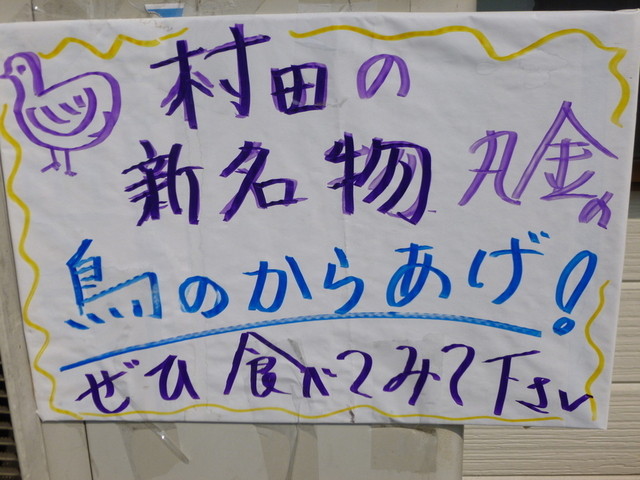 村田の
新名物 丸金の
鳥のからあげ!
ぜひ食べてみて下さい